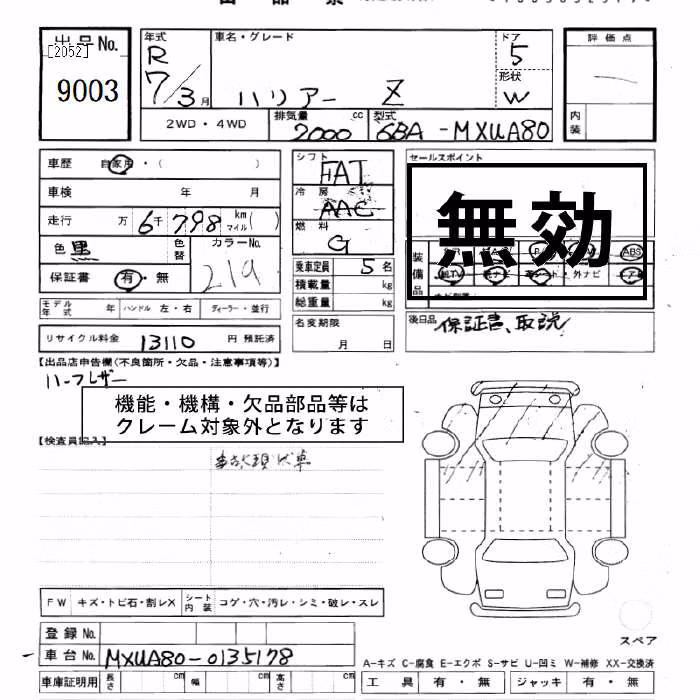 出品No.
[2052]
9003
年式
R
7/3月
車名・グレード
ハリアー Z
ドア
5
形状
W
評価点
内装
2WD・4WD
排気量 2000 cc
型式 6BA-MXUA80
車歴 自家用・( )
車検 年 月
走行 万 6千798 km マイル ( )
色 黒 色替
カラーNo. 219
保証書 有・無
モデル年式 年 ハンドル 左・右 ディーラー・並行
リサイクル料金 13110 円 預託済
シフト FAT
冷房 AAC
燃料 G
乗車定員 5名
積載量 kg
総重量 kg
名変期限
月 日
セールスポイント
無効
装備品
ABS
後日品 保証書、取説
【出品店申告欄(不良箇所・欠品・注意事項等)】
ハーフレザー
機能・機構・欠品部品等は
クレーム対象外となります
【検査員記入】
事故現状車
FW キズ・トビ石・割レX シート内装 コゲ・穴・汚レ・シミ・破レ・スレ
登録No.
車台No. MXUA80-0135178
車庫証明用 長さ cm 幅 cm 高さ cm
スペア
A-キズ C-腐食 E-エクボ S-サビ U-凹ミ W-補修 XX-交換済
工具 有・無 ジャッキ 有・無